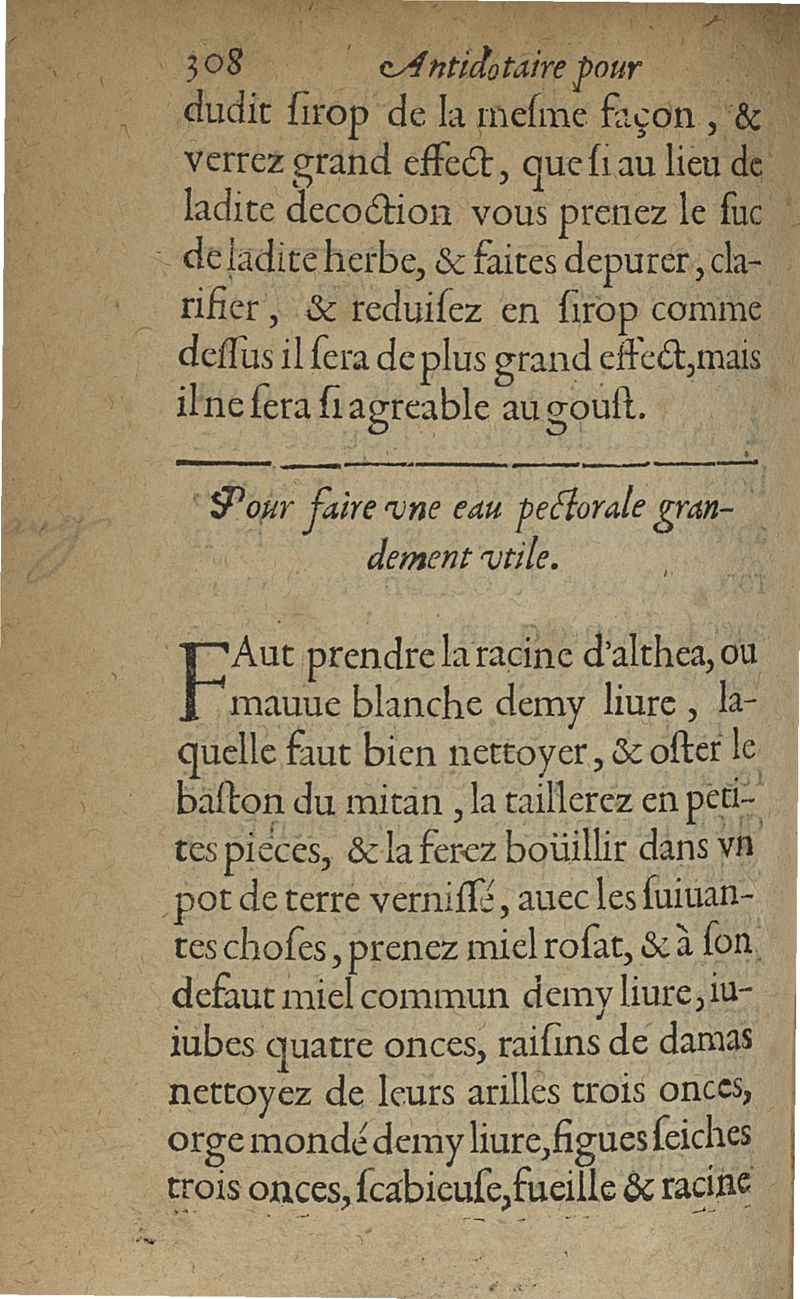 308 Antidotaire pour
dudit ſirop de la meſme façon, &
verrez grand effect, que ſi au lieu de
ladite decoction vous prenez le ſuc
de ladite herbe, & faites depurer, cla-
rifier, & reduiſez en ſirop comme
deſſus il ſera de plus grand effect, mais
il ne ſera ſi agreable au gouſt.
Pour faire vne eau pectorale gran-
dement vtile.
FAut prendre la racine d'althea, ou
mauue blanche demy liure, la-
quelle faut bien nettoyer, & oſter le
baſton du mitan, la taillerez en peti-
tes pieces, & la ferez boüillir dans vn
pot de terre verniſſé, auec les ſuiuan-
tes choſes, prenez miel roſat, & à ſon
defaut miel commun demy liure, iu-
iubes quatre onces, raiſins de damas
nettoyez de leurs arilles trois onces,
orge mondé demy liure, figues ſeiches
trois onces, ſcabieuſe, fueille & racine